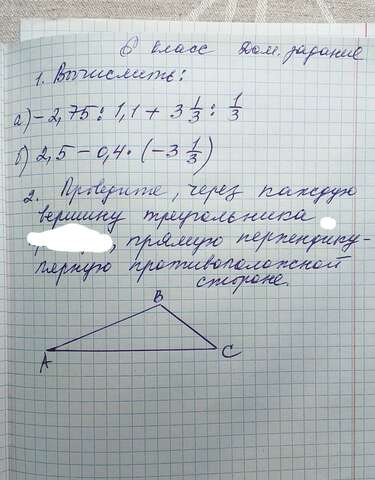 6 класс Дом. задание
1. Вычислить:
а) -2,75 : 1,1 + 3 1/3 : 1/3
б) 2,5 - 0,4 · (-3 1/3)
2. Проведите, через каждую
вершину треугольника
, прямую перпендику-
лярную противоположной
стороне.
B
A
C